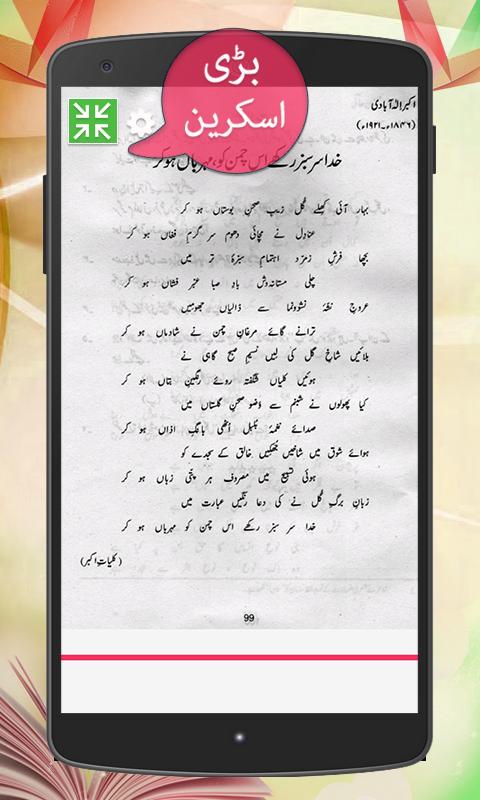 بڑی
اسکرین
اکبر الٰہ آبادی
(۱۸۴۶ء۔۱۹۲۱ء)
خدا سر سبز رکھے اس چمن کو، مہرباں ہو کر
بہار آئی کھلے گُل زیبِ صحنِ بوستاں ہو کر
عنادل نے مچائی دھوم سر گرمِ فغاں ہو کر
بچھا فرشِ زمرّد اہتمامِ سبزۂ تر میں
چلی مستانہ وش بادِ صبا عنبر فشاں ہو کر
عروجِ نشۂ نشوونما سے ڈالیاں جھومیں
ترانے گائے مرغانِ چمن نے شادماں ہو کر
بلائیں شاخِ گل کی لیں نسیمِ صبح گاہی نے
ہوئیں کلیاں شگفتہ روئے رنگینِ بتاں ہو کر
کیا پھولوں نے شبنم سے وضو صحنِ گلستاں میں
صدائے نغمۂ بلبل اُٹھی بانگِ اذاں ہو کر
ہوائے شوق میں شاخیں جُھکیں خالق کے سجدے کو
ہوئی تسبیح میں مصروف ہر پتّی زباں ہو کر
زبانِ برگِ گُل نے کی دعا رنگیں عبارت میں
خدا سر سبز رکھے اس چمن کو مہرباں ہو کر
(کلیاتِ اکبر)
99